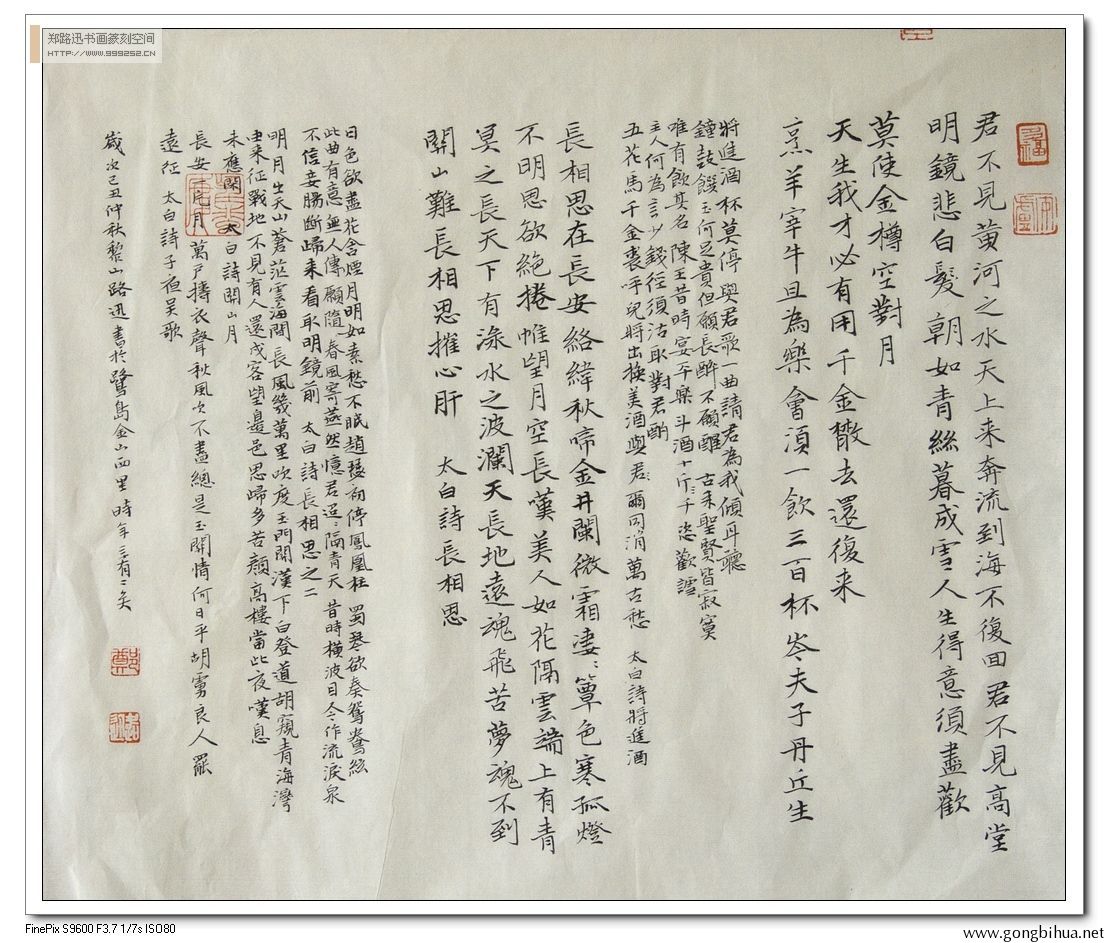 郑路迅书画篆刻空间
HTTP://WWW.999252.CN
君不見黄河之水天上来奔流到海不復回君不見高堂
明鏡悲白髮朝如青絲暮成雪人生得意須盡歡
莫使金樽空對月
天生我才必有用千金散去還復来
烹羊宰牛且為樂會須一飲三百杯岑夫子丹丘生
將進酒杯莫停與君歌一曲請君為我傾耳聽
鐘鼓饌玉何足貴但願長醉不願醒古来聖賢皆寂寞
唯有飲其名陳王昔時宴平樂斗酒十斤=千恣歡謔
主人何為言少錢徑須沽取對君酌
五花馬千金裘呼兒將出換美酒與君=爾同消萬古愁 太白詩將進酒
長相思在長安絡緯秋啼金井闌微霜凄=簟色寒孤燈
不明思欲絶捲帷望月空長嘆美人如花隔雲端上有青
冥之長天下有淥水之波瀾天長地遠魂飛苦夢魂不到
關山難長相思摧心肝 太白詩長相思
日色欲盡花含煙月明如素愁不眠趙瑟初停鳳凰柱蜀琴欲奏鴛鴦絃
此曲有意無人傳願隨春風寄燕然憶君迢=隔青天昔時橫波目今作流淚泉
不信妾腸斷歸来看取明鏡前 太白詩長相思之二
明月生天山蒼茫雲海間長風幾萬里吹度玉門關漢下白登道胡窺青海灣
由来征戰地不見有人還戍客望邊色思歸多苦顔高樓當此夜嘆息
未應閑 太白詩關山月
長安一片月萬戸擣衣聲秋風吹不盡總是玉關情何日平胡虜良人罷
遠征 太白詩子夜吴歌
歲次己丑仲秋黎山路迅書於鷺島金山西里時年三有二矣
FinePix S9600 F3.7 1/7s ISO80
www.gongbihua.net